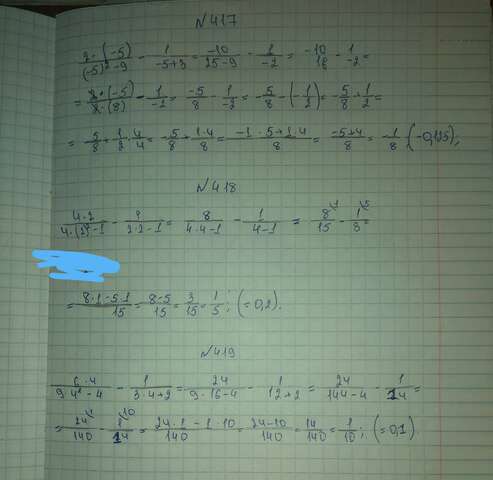 N417
2·(-5)/(-5)²-9 - 1/-5+3 = -10/25-9 - 1/-2 = -10/16 - 1/-2 =
= 2·(-5)/2·(8) - 1/-2 = -5/8 - 1/-2 = -5/8 - (-1/2) = -5/8 + 1/2 =
= 5/8 + 1/2 · 4/4 = -5/8 + 1·4/8 = -1·5+1·4/8 = -5+4/8 = -1/8 (-0,125);
N418
4·2/4·(2)²-1 - 1/2·2-1 = 8/4·4-1 - 1/4-1 = 8/15 - 1/3 =
= 8·1-5·1/15 = 8-5/15 = 3/15 = 1/5; (=0,2).
N419
6·4/9·4²-4 - 1/3·4+2 = 24/9·16-4 - 1/12+2 = 24/144-4 - 1/14 =
= 24/140 - 1/14 = 24·1-1·10/140 = 24-10/140 = 14/140 = 1/10; (=0,1)